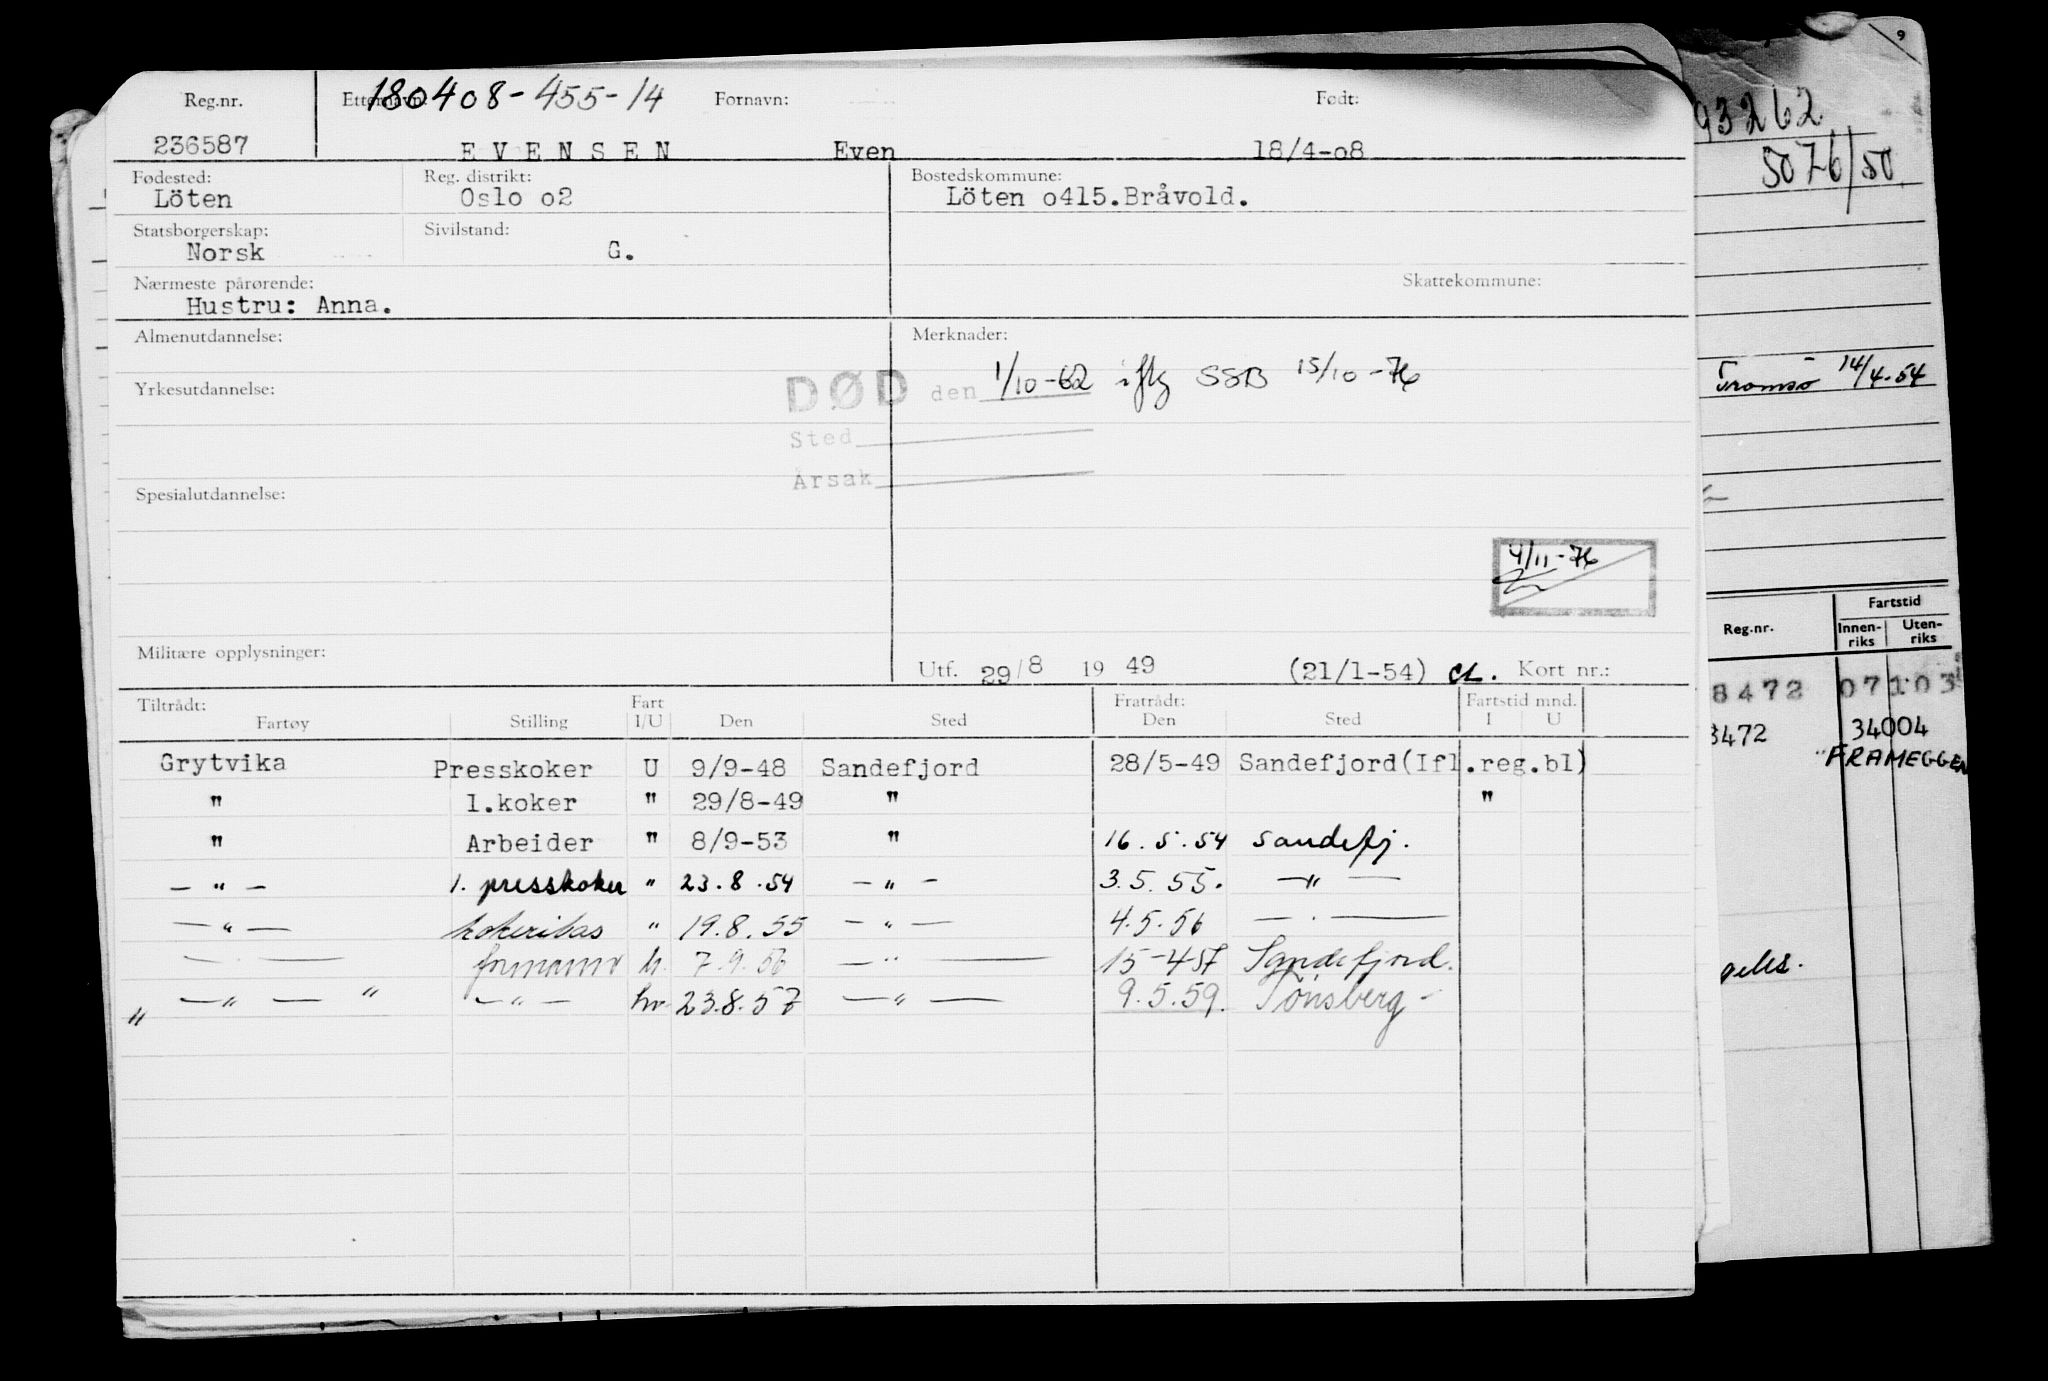 Reg.nr. Etternavn: 180408-455-14 Fornavn: Født:
236587 EVENSEN Even 18/4-o8
Fødested: Reg. distrikt: Bostedskommune:
Löten Oslo o2 Löten o415.Bråvold.
Statsborgerskap: Sivilstand:
Norsk G.
Nærmeste pårørende: Skattekommune:
Hustru: Anna.
Almenutdannelse: Merknader:
Yrkesutdannelse: DØD den 1/10-62 iflg SSB 15/10-76
Sted
Årsak
Spesialutdannelse:
4/11-76
Militære opplysninger:
Utf. 29/8 1949 (21/1-54) Kort nr.:
Tiltrådt: Fart Fratrådt: Fartstid mnd.
Fartøy Stilling I/U Den Sted Den Sted I U
Grytvika Presskoker U 9/9-48 Sandefjord 28/5-49 Sandefjord(Ifl.reg.bl)
" 1.koker " 29/8-49 " "
" Arbeider " 8/9-53 " 16.5.54 Sandefj.
— " — 1. presskoker " 23.8.54 — " — 3.5.55. — " —
— " — kokeribas " 19.8.55 — " — 4.5.56 — . —
— . — formann h. 7.9.56 — " — 15-457 Sandefjord.
" — " — " — " — hv 23.8.57 — " — 9.5.59. Tönsberg -
9
93262
5076/50
Tromsö 14/4.54
Reg.nr. Fartstid
Innen-riks Uten-riks
8472 07103
3472 34004
"FRAMEGGEN